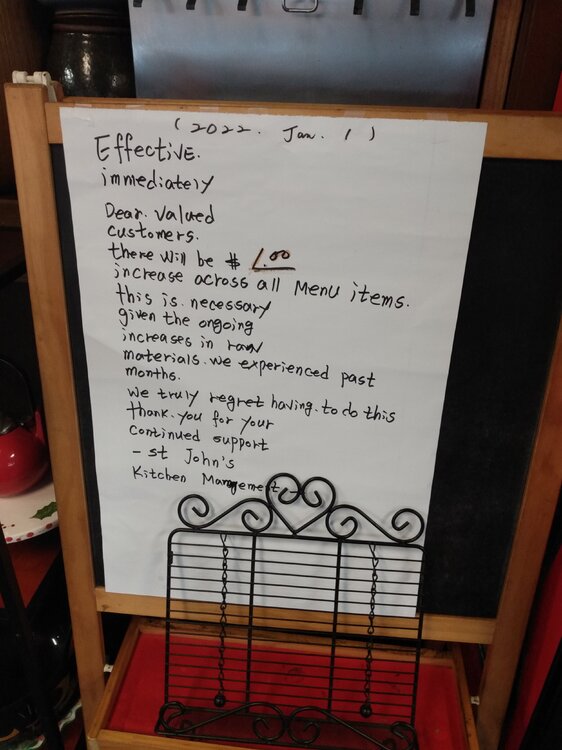 ( 2022. Jan. 1 )
Effective.
immediately
Dear. Valued
customers.
there will be $ 1.00
increase across all Menu items.
this is necessary
given the ongoing
increases in raw
materials. we experienced past
months.
we truly regret having. to do this
thank. you for your
continued support
- st John's
Kitchen Management